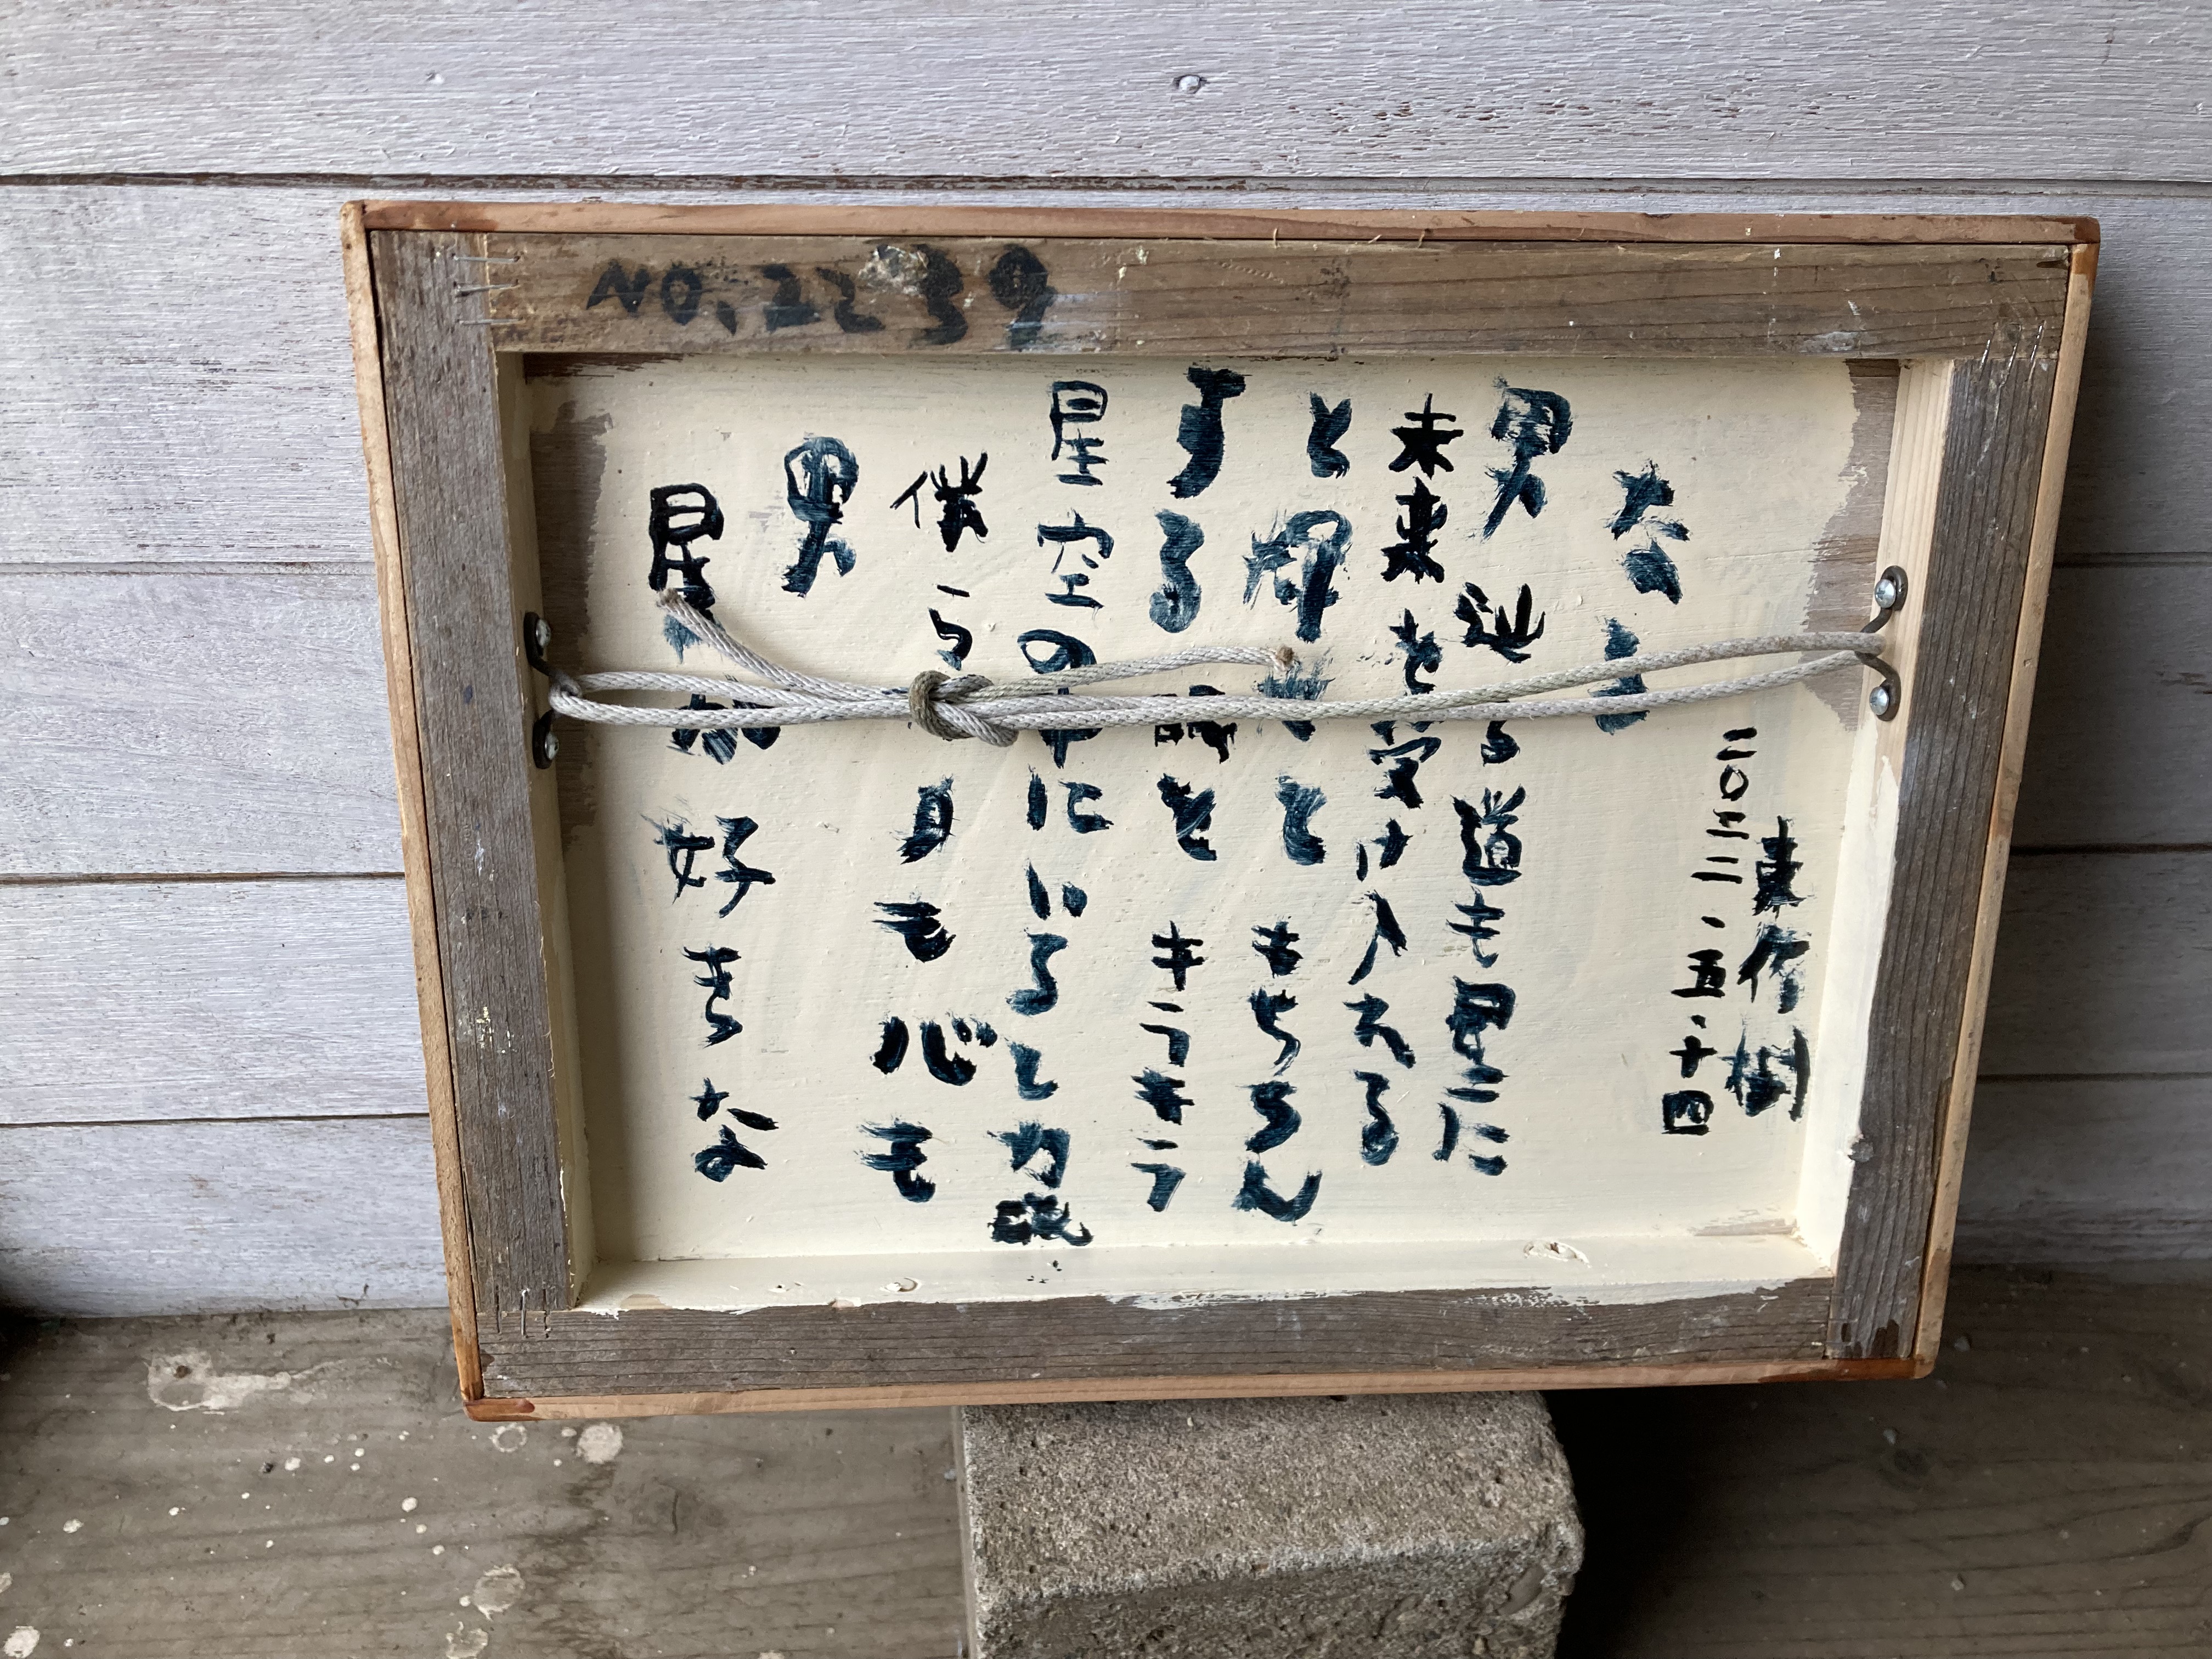 NO.2239
星 好きな
男
僕ら 身も心も
星空の中にいると力説
する と キラキラ
と輝 と もちろん
未来を受け入れる
男 辿る道も星に
なる
二〇二二.五.十四
東作樹